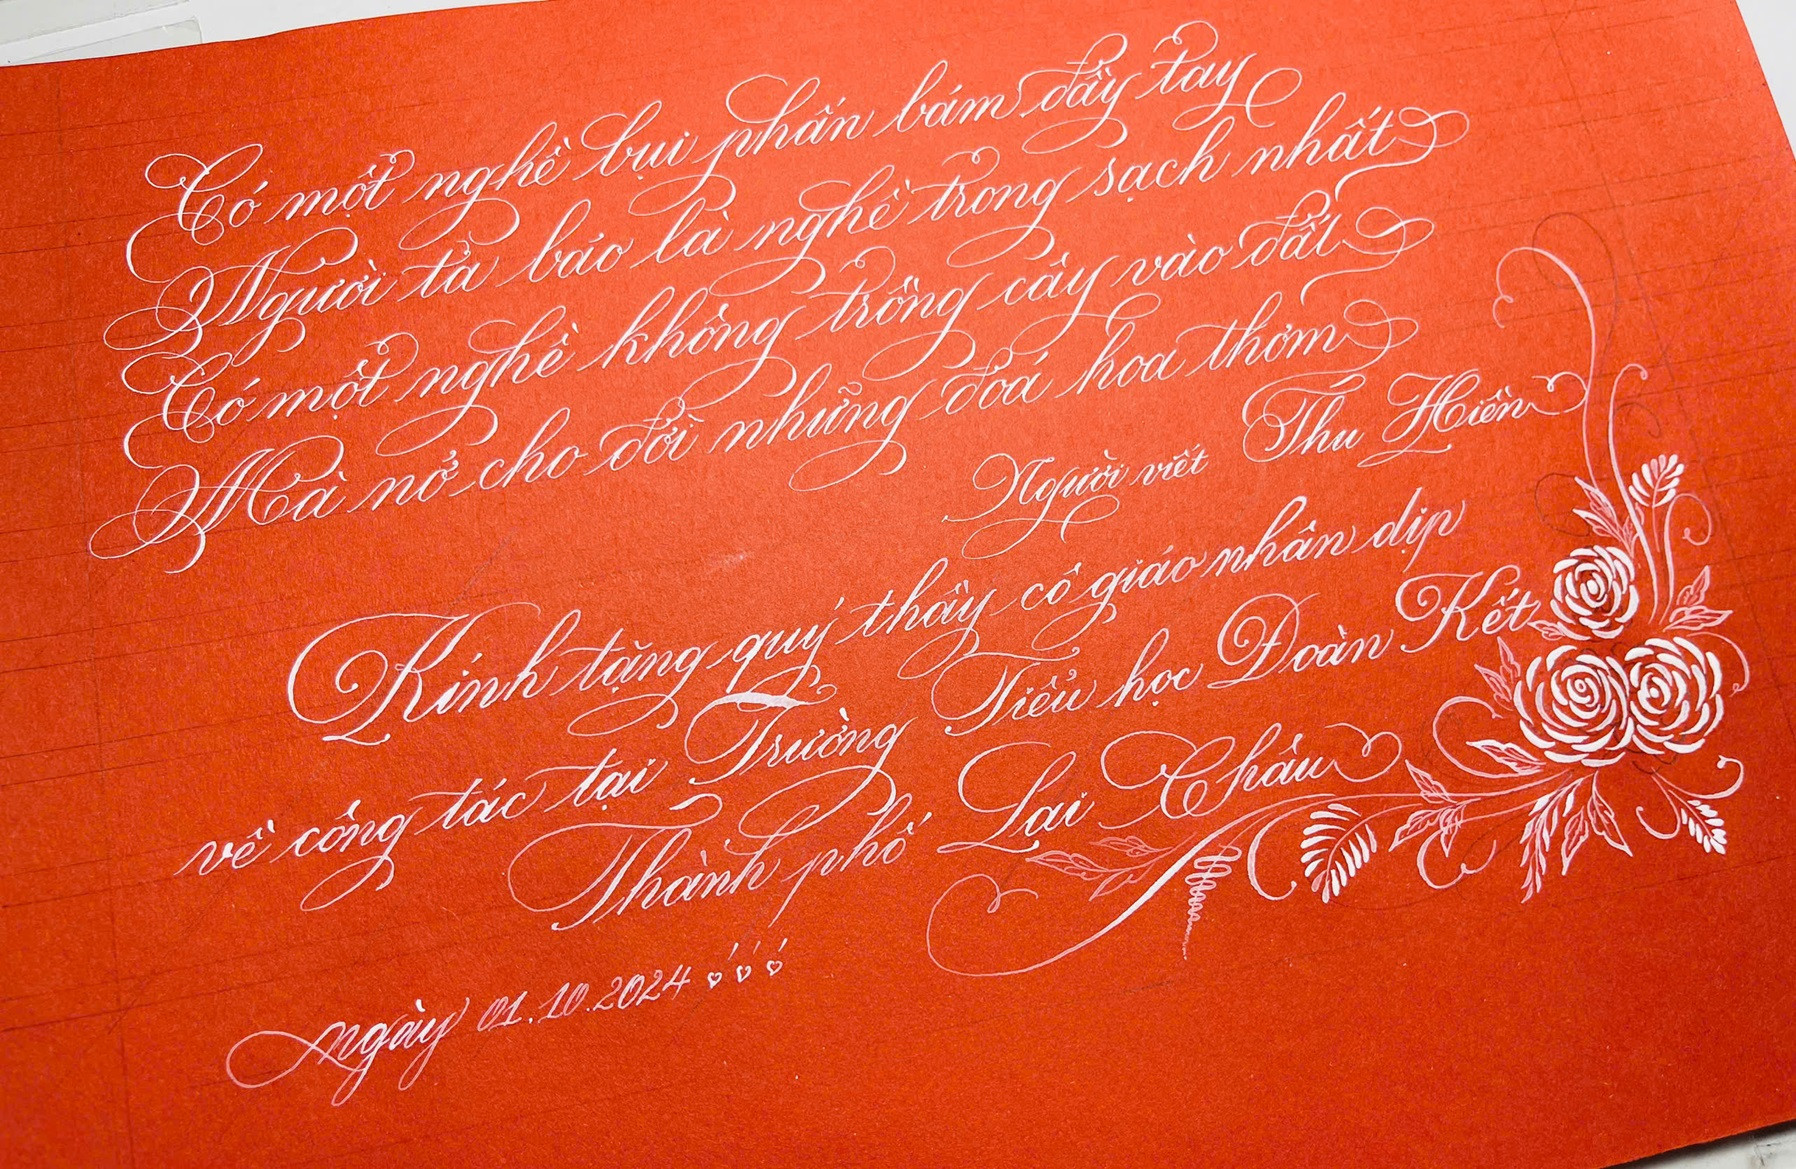 Có một nghề bụi phấn bám đầy tay
Người ta bảo là nghề trong sạch nhất
Có một nghề không trồng cây vào đất
Mà nở cho đời những đoá hoa thơm
Người viết Thu Hiền
Kính tặng quý thầy cô giáo nhân dịp
về công tác tại Trường Tiểu học Đoàn Kết
Thành phố Lai Châu
ngày 01.10.2024